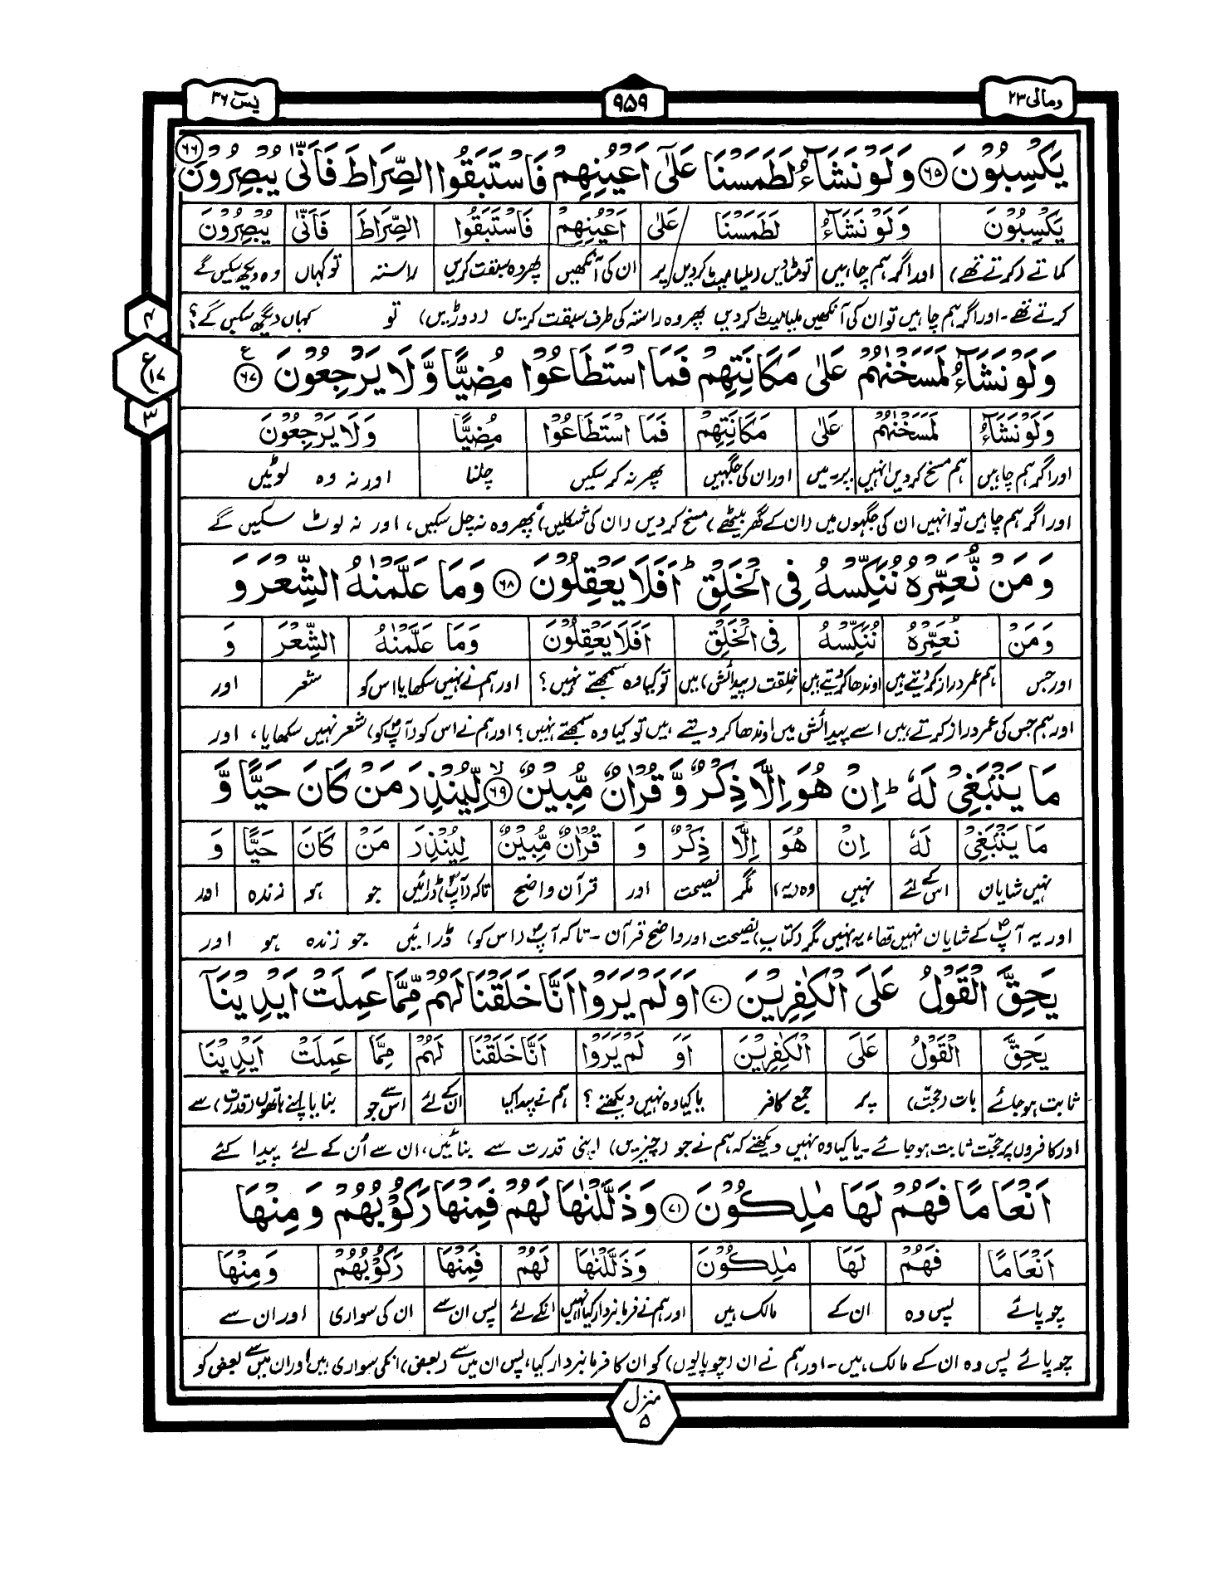 ومالی ۲۳
۹۵۹
یٰسٓ ۳۶
یَكْسِبُوْنَ ۶۵ وَلَوْ نَشَآءُ لَطَمَسْنَا عَلٰۤی اَعْیُنِهِمْ فَاسْتَبَقُوا الصِّرَاطَ فَاَنّٰی یُبْصِرُوْنَ ۶۶
یَكْسِبُوْنَ وَلَوْ نَشَآءُ لَطَمَسْنَا عَلٰی اَعْیُنِهِمْ فَاسْتَبَقُوا الصِّرَاطَ فَاَنّٰی یُبْصِرُوْنَ
کماتے (کرتے تھے) اور اگر ہم چاہیں تو مٹا دیں (ملیامیٹ کر دیں) پر ان کی آنکھیں پھر وہ سبقت کریں راستہ تو کہاں وہ دیکھ سکیں گے
کرتے تھے۔ اور اگر ہم چاہیں تو ان کی آنکھیں ملیامیٹ کر دیں پھر وہ راستہ کی طرف سبقت کریں (دوڑیں) تو کہاں دیکھ سکیں گے؟
۴
ع
۱۷
۳
وَلَوْ نَشَآءُ لَمَسَخْنٰهُمْ عَلٰی مَكَانَتِهِمْ فَمَا اسْتَطَاعُوْا مُضِیًّا وَّلَا یَرْجِعُوْنَ ۶۷ ع
وَلَوْ نَشَآءُ لَمَسَخْنٰهُمْ عَلٰی مَكَانَتِهِمْ فَمَا اسْتَطَاعُوْا مُضِیًّا وَلَا یَرْجِعُوْنَ
اور اگر ہم چاہیں ہم مسخ کر دیں انہیں پر۔میں اور ان کی جگہیں پھر نہ کر سکیں چلنا اور نہ وہ لوٹیں
اور اگر ہم چاہیں تو انہیں ان کی جگہوں میں (ان کے گھر بیٹھے) مسخ کر دیں (ان کی شکلیں) پھر وہ نہ چل سکیں، اور نہ لوٹ سکیں گے
وَمَنْ نُّعَمِّرْهُ نُنَكِّسْهُ فِی الْخَلْقِ ؕ اَفَلَا یَعْقِلُوْنَ ۶۸ وَمَا عَلَّمْنٰهُ الشِّعْرَ وَ
وَمَنْ نُعَمِّرْهُ نُنَكِّسْهُ فِی الْخَلْقِ اَفَلَا یَعْقِلُوْنَ وَمَا عَلَّمْنٰهُ الشِّعْرَ وَ
اور جس ہم عمر دراز کر دیتے ہیں اوندھا کر دیتے ہیں خلقت (پیدائش) میں تو کیا وہ سمجھتے نہیں؟ اور ہم نے نہیں سکھایا اس کو شعر اور
اور ہم جس کی عمر دراز کرتے ہیں اسے پیدائش میں اوندھا کر دیتے ہیں تو کیا وہ سمجھتے نہیں؟ اور ہم نے اس کو (آپؐ کو) شعر نہیں سکھایا، اور
مَا یَنْۢبَغِیْ لَهٗ ؕ اِنْ هُوَ اِلَّا ذِكْرٌ وَّ قُرْاٰنٌ مُّبِیْنٌ ۶۹ لِّیُنْذِرَ مَنْ كَانَ حَیًّا وَّ
مَا یَنْۢبَغِیْ لَهٗ اِنْ هُوَ اِلَّا ذِكْرٌ وَ قُرْاٰنٌ مُّبِیْنٌ لِیُنْذِرَ مَنْ كَانَ حَیًّا وَ
نہیں شایان اس کے لئے نہیں وہ (یہ) مگر نصیحت اور قرآن واضح تاکہ (آپؐ) ڈرائیں جو ہو زندہ اور
اور یہ آپؐ کے شایان نہیں تھا، یہ نہیں مگر (کتاب) نصیحت اور واضح قرآن۔ تاکہ آپؐ (اس کو) ڈرائیں جو زندہ ہو اور
یَحِقَّ الْقَوْلُ عَلَی الْكٰفِرِیْنَ ۷۰ اَوَ لَمْ یَرَوْا اَنَّا خَلَقْنَا لَهُمْ مِّمَّا عَمِلَتْ اَیْدِیْنَاۤ
یَحِقَّ الْقَوْلُ عَلَی الْكٰفِرِیْنَ اَوَ لَمْ یَرَوْا اَنَّا خَلَقْنَا لَهُمْ مِّمَّا عَمِلَتْ اَیْدِیْنَا
ثابت ہو جائے بات (حجت) پر جمع کافر یا کیا وہ نہیں دیکھتے؟ ہم نے پیدا کیا ان کے لئے اس سے جو بنایا اپنے ہاتھوں (قدرت) سے
اور کافروں پر حجت ثابت ہو جائے۔ یا کیا وہ نہیں دیکھتے کہ ہم نے جو (چیزیں) اپنی قدرت سے بنائیں، ان سے اُن کے لئے پیدا کئے
اَنْعَامًا فَهُمْ لَهَا مٰلِكُوْنَ ۷۱ وَذَلَّلْنٰهَا لَهُمْ فَمِنْهَا رَكُوْبُهُمْ وَمِنْهَا
اَنْعَامًا فَهُمْ لَهَا مٰلِكُوْنَ وَذَلَّلْنٰهَا لَهُمْ فَمِنْهَا رَكُوْبُهُمْ وَمِنْهَا
چوپائے پس وہ ان کے مالک ہیں اور ہم نے فرمانبردار کیا انہیں انکے لئے پس ان سے ان کی سواری اور ان سے
چوپائے پس وہ ان کے مالک ہیں۔ اور ہم نے ان (چوپایوں) کو ان کا فرمانبردار کیا، پس ان میں سے (بعض) انکی سواری ہیں اور ان میں سے بعض کو
منزل ۵